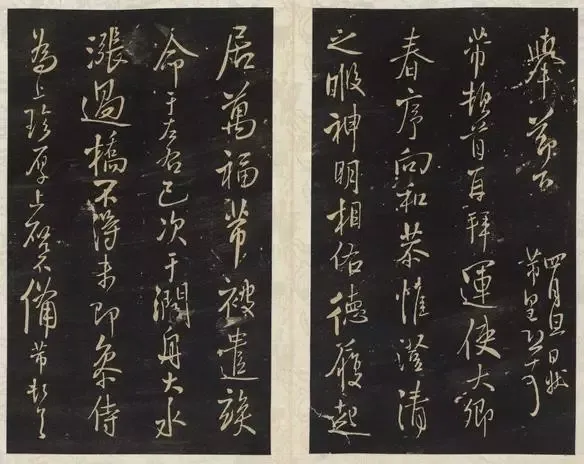 芾頓首再拜運使大卿
春序向和恭惟澄清
之暇神明相佑德履起
居萬福芾被遣竢
命于左右已次于潤舟大水
漲過橋不得未即參侍
為上珍厚上啓不備芾頓首